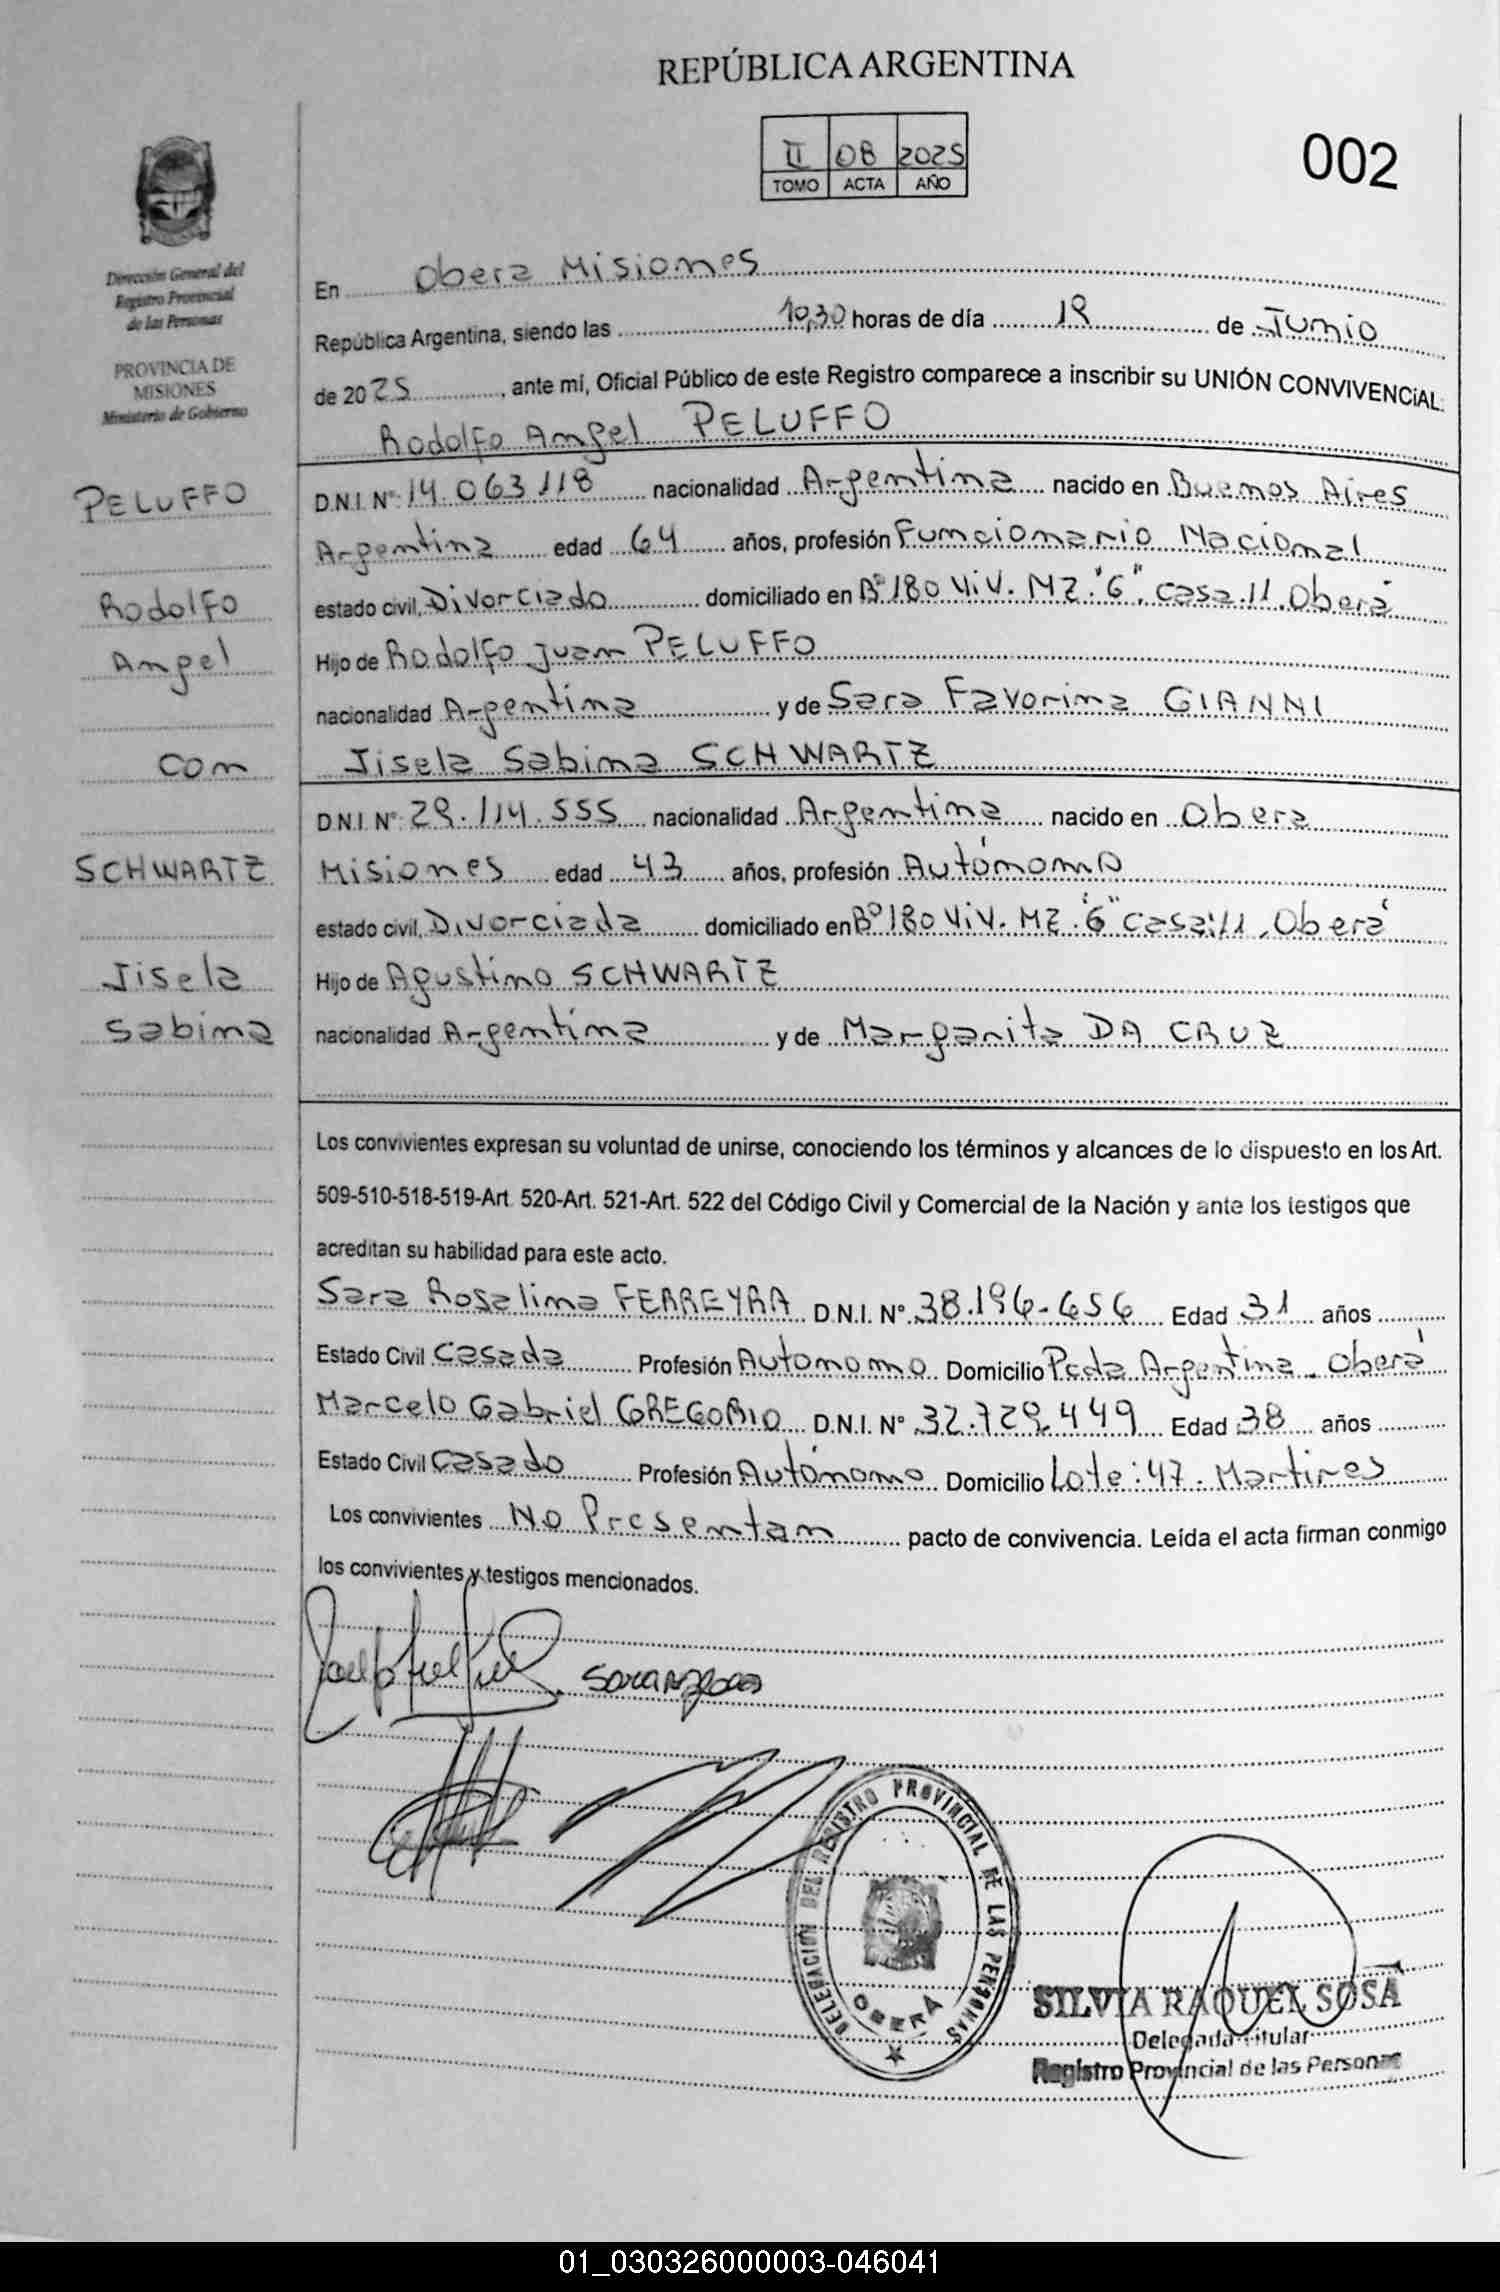 REPÚBLICA ARGENTINA
II 08 2025
TOMO ACTA AÑO
002
Dirección General del
Registro Provincial
de las Personas
PROVINCIA DE
MISIONES
Ministerio de Gobierno
PELUFFO
Rodolfo
Angel
con
SCHWARTZ
Jisela
Sabina
En Obera Misiones
República Argentina, siendo las 10,30 horas de día 19 de Junio
de 2025, ante mí, Oficial Público de este Registro comparece a inscribir su UNIÓN CONVIVENCIAL:
Rodolfo Angel PELUFFO
D.N.I. N° 14.063.118 nacionalidad Argentina nacido en Buenos Aires
Argentina edad 64 años, profesión Funcionario Nacional
estado civil, Divorciado domiciliado en B° 180 Viv. MZ. "G". casa.11. Oberá
Hijo de Rodolfo Juan PELUFFO
nacionalidad Argentina y de Sara Favorina GIANNI
Jisela Sabina SCHWARTZ
D.N.I. N° 29.114.555 nacionalidad Argentina nacido en Obera
Misiones edad 43 años, profesión Autónomo
estado civil, Divorciada domiciliado en B° 180 Viv. MZ. "G" casa:11. Oberá
Hijo de Agustino SCHWARTZ
nacionalidad Argentina y de Margarita DA CRUZ
Los convivientes expresan su voluntad de unirse, conociendo los términos y alcances de lo dispuesto en los Art.
509-510-518-519-Art. 520-Art. 521-Art. 522 del Código Civil y Comercial de la Nación y ante los testigos que
acreditan su habilidad para este acto.
Sara Rosalina FERREYRA D.N.I. N° 38.196.656 Edad 31 años
Estado Civil Casada Profesión Autonomo Domicilio Pcda Argentina. Oberá
Marcelo Gabriel GREGORIO D.N.I. N° 32.729.449 Edad 38 años
Estado Civil Casado Profesión Autónomo Domicilio Lote: 47. Martires
Los convivientes No Presentan pacto de convivencia. Leída el acta firman conmigo
los convivientes y testigos mencionados.
DELEGACION DEL REGISTRO PROVINCIAL DE LAS PERSONAS
OBERÁ
SILVIA RAQUEL SOSA
Delegada Titular
Registro Provincial de las Personas
01_030326000003-046041